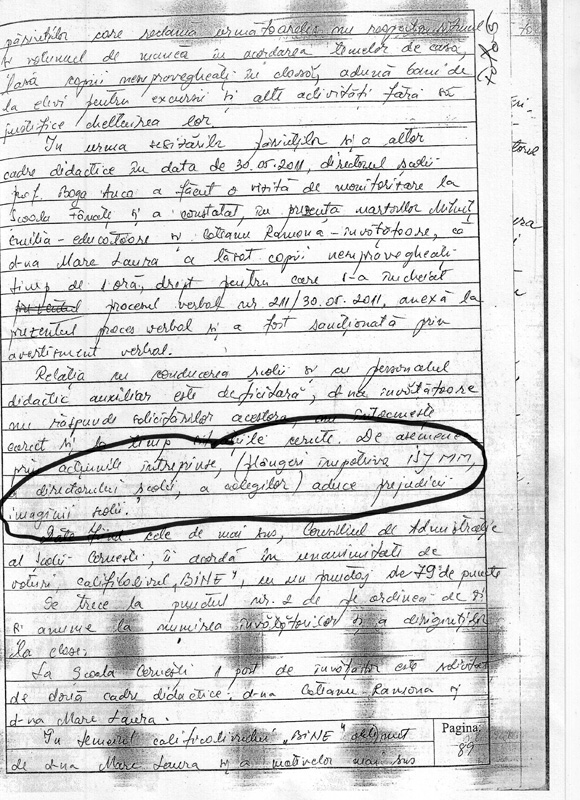 părinților care reclamă următoarele: nu respectă
și volumul de muncă în acordarea temelor de casă,
lasă copiii nesupravegheați în clasă, adună bani de
la elevi pentru excursii și alte activități fără să
justifice cheltuirea lor.
În urma sesizărilor părinților și a altor
cadre didactice în data de 30.05.2011, directorul școlii
prof. Boga Anca a făcut o vizită de monitorizare la
Școala și a constatat, în prezența martorilor
Emilia - educatoare și Colteanu Ramona - învățătoare, că
d-na Mare Laura a lăsat copiii nesupravegheați
timp de 1 oră, drept pentru care s-a încheiat
procesul verbal nr. 211/30.05.2011, anexă la
prezentul proces verbal și a fost sancționată prin
avertisment verbal.
Relația cu conducerea școlii și cu personalul
didactic auxiliar este deficitară, d-na învățătoare
nu răspunde solicitărilor acestora, nu întocmește
corect și la timp cerute. De asemenea
prin acțiunile întreprinse, (plângeri împotriva ISJ MM,
directorului școlii, a colegilor) aduce prejudicii
imaginii școlii.
cele de mai sus, Consiliul de Administrație
al Școlii Cernești, îi acordă în unanimitate de
voturi, calificativul „BINE", cu un punctaj de 79 de puncte
Se trece la punctul nr. 2 de pe ordinea de zi
și anume la numirea învățătorilor și a diriginților
la clase.
La Școala Cernești 1 post de învățător este solicitat
de două cadre didactice: d-na Colteanu Ramona și
d-na Mare Laura.
În temeiul calificativului „BINE" obținut
de d-na Mare Laura și a motivelor mai sus
Pagina:
89